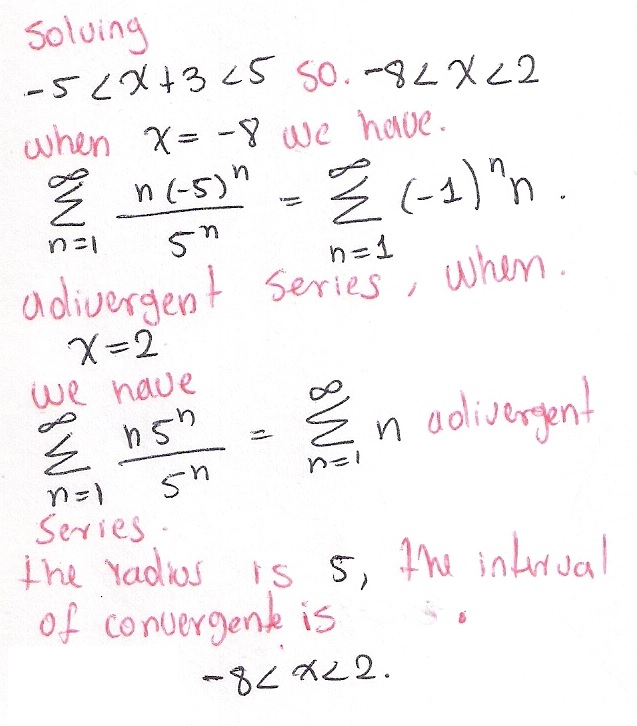 Solving
-5 < x+3 < 5 so. -8 < x < 2
when x = -8 we have.
∞ ∑ n=1 n(-5)ⁿ / 5ⁿ = ∞ ∑ n=1 (-1)ⁿ n .
adivergent series, when.
x=2
we have
∞ ∑ n=1 n5ⁿ / 5ⁿ = ∞ ∑ n=1 n adivergent
series.
the radius is 5, the interval
of convergente is
-8 < x < 2.